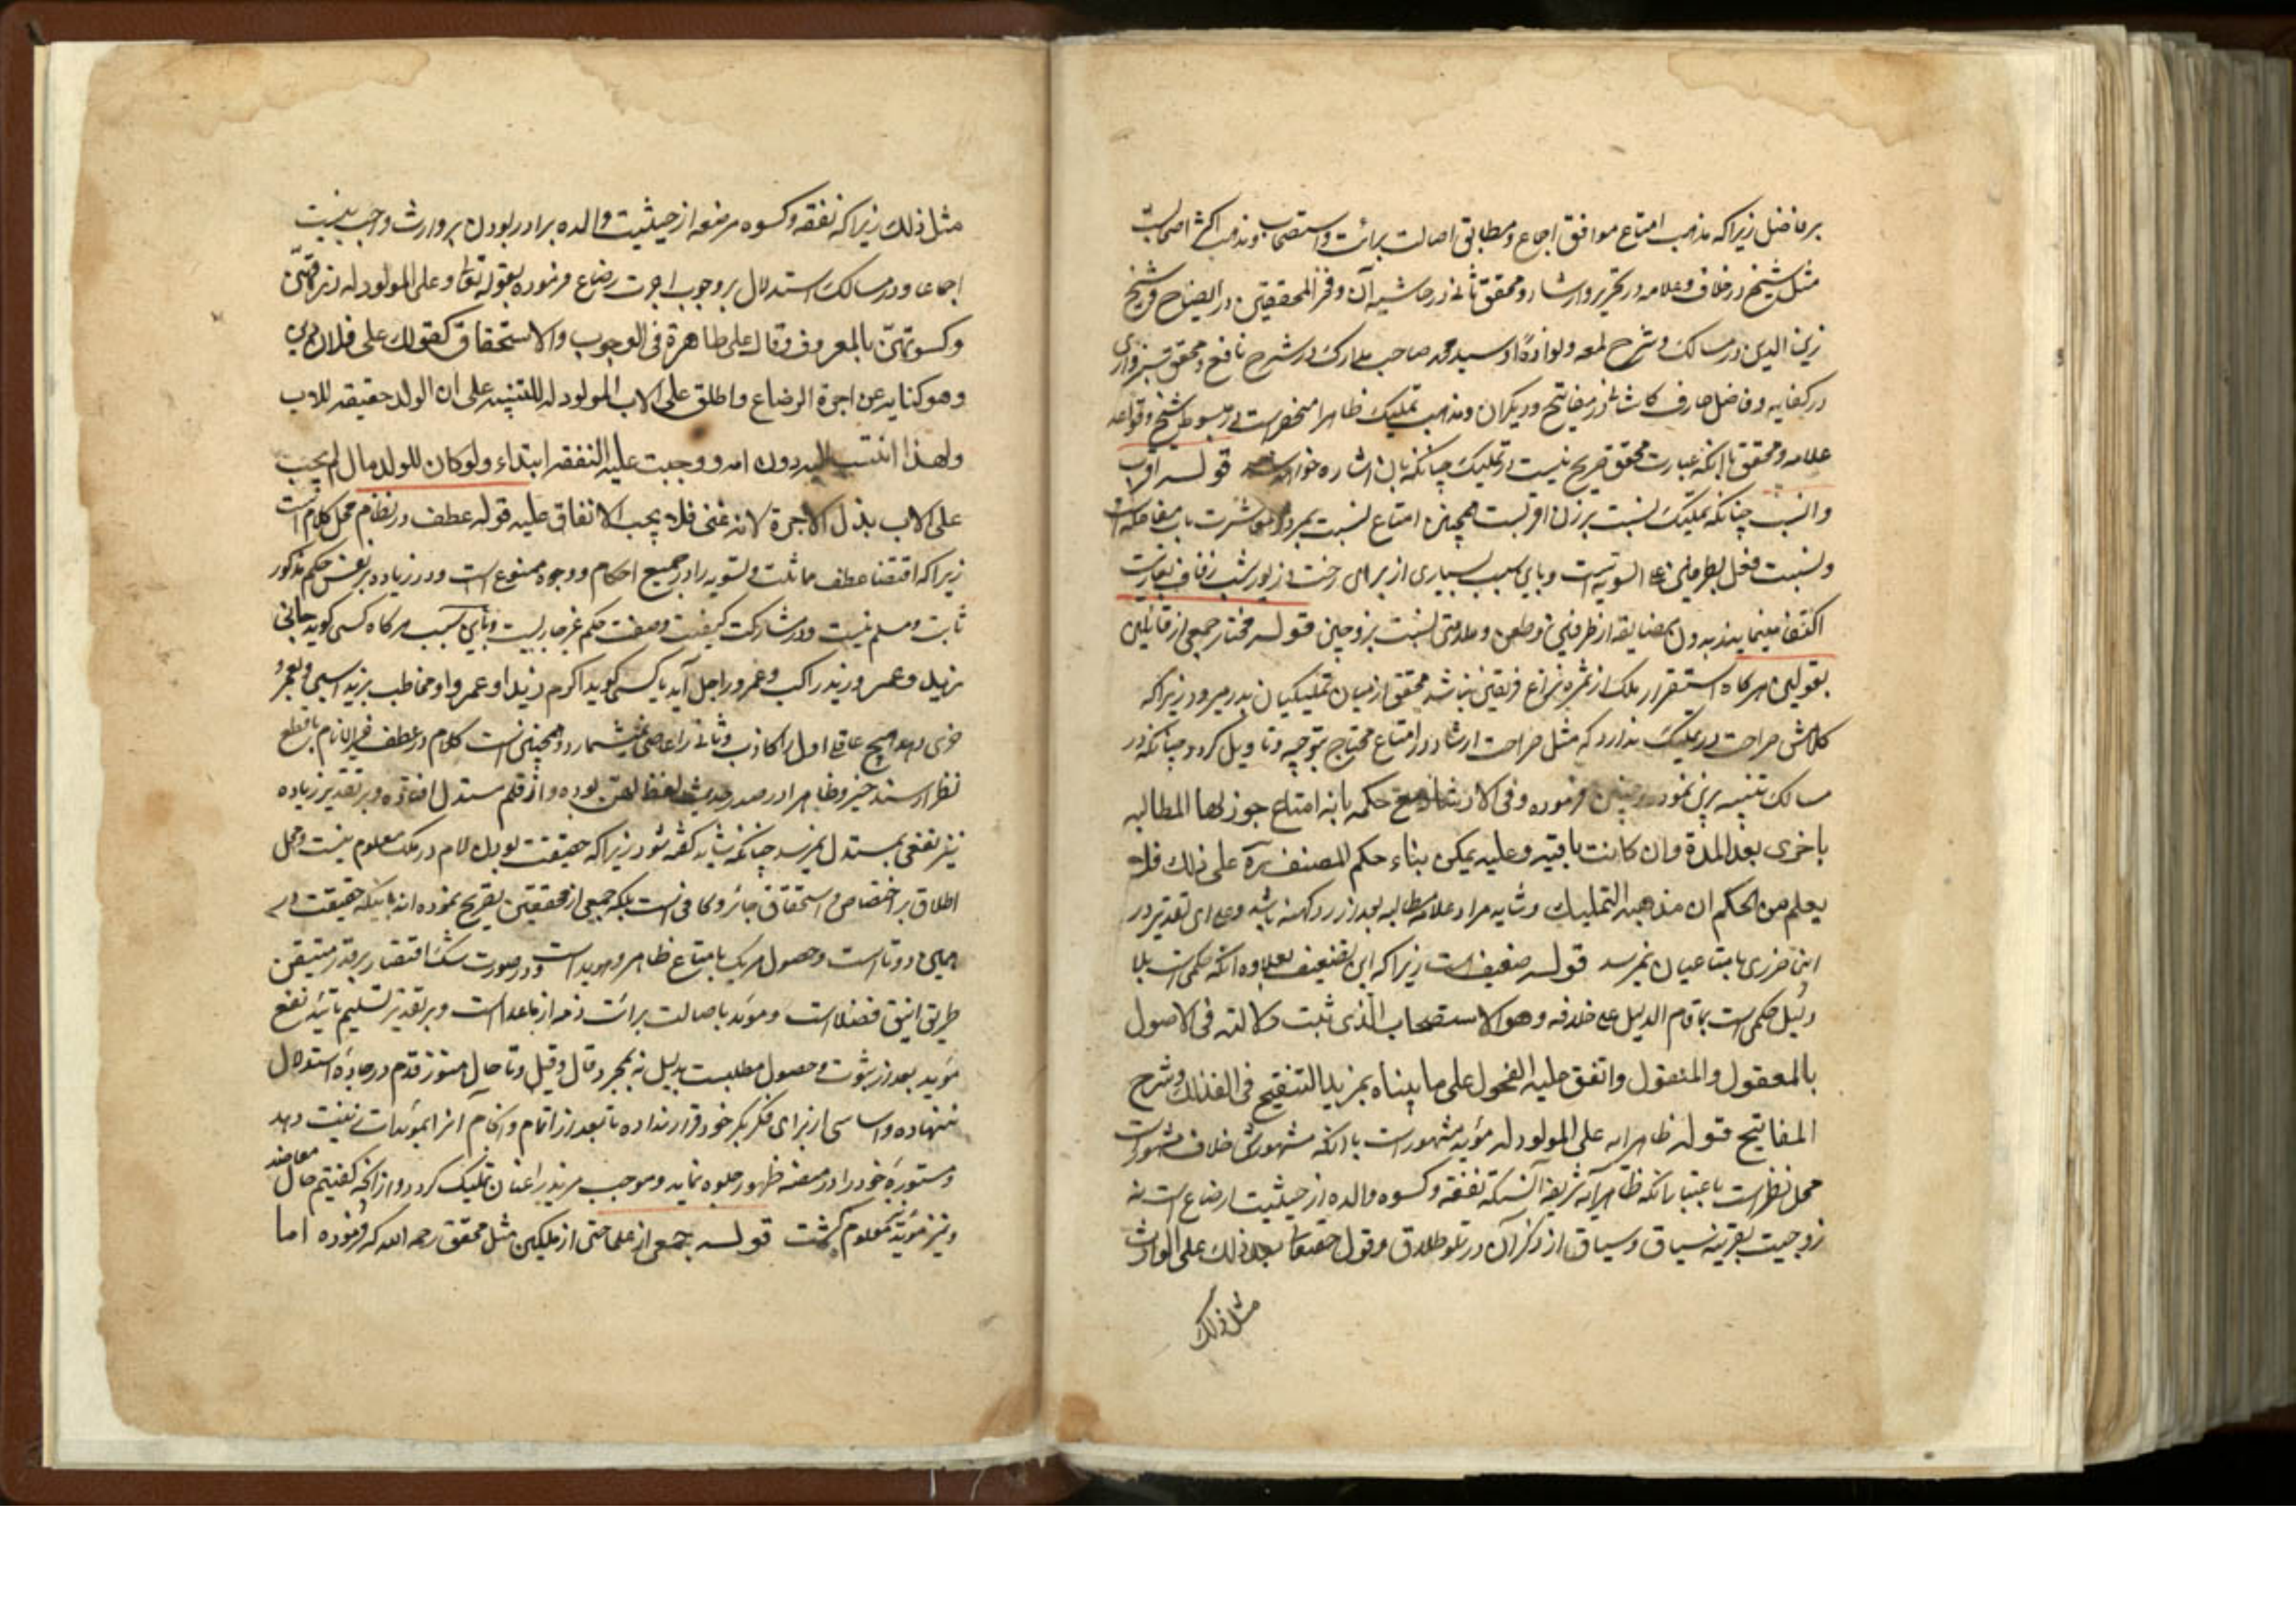 بر فاضل زیرا که مذهب امتاع موافق اجماع و مطابق اصالت برائت و استصحاب و مذهب اکثر اصحابست
مثل شیخ در خلاف و علامه در تحریر و ارشاد و محقق ثانی در حاشیه آن و فخر المحققین در ایضاح و شیخ
زین الدین در مسالک و شرح لمعه و نواده او سید محمد صاحب مدارک در شرح نافع و محقق سبزواری
در کفایه و فاضل عارف کاشانی در مفاتیح و دیگران و مذهب تملیک ظاهرا منحصر است در مبسوط شیخ و قواعد
علامه و محقق با آنکه عبارت محقق صریح نیست در تملیک چنانکه بان اشاره خواهد شد قوله اقرب
و انسب چنانکه تملیک نسبت بزن اقربست همچنین امتاع نسبت بمرد و معاشرت باب مفاعله است
و نسبت فعل بطرفین علی السویه است و باین سبب بسیاری از برای رخت و زیور شب زفاف بعاریت
اکتفا مینمایند بدون مضایقه از طرفین و طعن و ملامتی نسبت بزوجین قوله مختار جمعی از قایلین
بقولین هرگاه استقرار ملک از ثمره نزاع فریقین نباشد محقق از میان تملیکیان بدر میرود زیرا که
کلامش صراحت در تملیک ندارد که مثل صراحت ارشاد در امتاع محتاج بتوجیه و تاویل گردد چنانکه در
مسالک تنبیه برین نموده و چنین فرموده و فی الارشاد مع حکمه بانه امتاع جوز لها المطالبه
باخری بعد المدة وان کانت باقیه وعلیه یمکن بناء حکم المصنف ره علی ذلك فلا
یعلم من الحکم ان مذهبه التملیك و شاید مراد علامه مطالبه بعد از رد کهنه باشد و علی ای تقدیر در
این ضرری بامتاعیان نمیرسد قوله ضعیف است زیرا که این تضعیف بعلاوه آنکه حکمی است بلا
دلیل حکمی است بما قام الدلیل علی خلافه وهو الاستصحاب الذی ثبت دلالته فی الاصول
بالمعقول والمنقول واتفق علیه الفحول علی ما بیناه بمزید التنقیح فی الفذالك وشرح
المفاتیح قوله ظاهرا به علی المولود له مؤید مشهور است با آنکه مشهورش خلاف مشهور است
محل نظر است باعتبار آنکه ظاهر آیه شریفه آنستکه نفقه و کسوه والده از حیثیت ارضاع است نه
زوجیت بقرینه سیاق و سباق از ذکر آن در تلو طلاق و قول حقتعالی بعد ذلك علی الوارث
مثل ذلك
مثل ذلك زیرا که نفقه و کسوه مرضعه از حیثیت والده برادر بودن بر وارث واجب نیست
اجماعا و در مسالک استدلال بر وجوب اجرت رضاع فرموده بقوله تعالی وعلی المولود له رزقهن
وکسوتهن بالمعروف وقال علی ظاهرة فی الوجوب والاستحقاق کقولك علی فلان دین
وهو کنایه عن اجرة الرضاع واطلق علی الاب المولود له للتنبیه علی ان الولد حقیقه للاب
ولهذا انتسب الیه دون امه ووجبت علیه النفقه ابتداء ولو کان للولد مال لم یجب
علی الاب بذل الاجرة لانه غنی فلا یجب الانفاق علیه قوله عطف در نظام محل کلام است
زیرا که اقتضاء عطف مماثلت و تسویه را در جمیع احکام و وجوه ممنوع است و در زیاده بر نفس حکم مذکور
ثابت و مسلم نیست و در مشارکت کیفیت و صفت حکم غیر جاریست و باین سبب هرگاه کسی گوید جاءنی
زید وعمرو و زید راکب و عمرو راجل آید یا کسی گوید اکرم زیدا وعمروا و مخاطب بزید اسبی و بعمرو
خری دهد هیچ عاقلی اول را کاذب و ثانی را عاصی نمیشمارد و همچنین است کلام در عطف فی با قطع
نظر از سند خبر و ظاهرا در صدر حدیث لفظ لهن بوده و از قلم مستدل افتاده و بر تقدیر زیاده
نیز نفعی بمستدل نمیرسد چنانکه شاید گفته شود زیرا که حقیقت بودن لام در ملک معلوم نیست و محل
اطلاق بر اختصاص و استحقاق جایز و کافی است بلکه جمعی از محققین تصریح نموده اند باینکه حقیقت در
همین دوتا است و حصول هریک بامتاع ظاهر و هویدا است و در صورت شک اقتصار بر قدر متیقن
طریق انیق فضلا است و مؤید باصالت برائت ذمه از ماعداست و بر تقدیر تسلیم تایید نفع
مؤید بعد از ثبوت و حصول مطلبست بدلیل نه بمجرد قال و قیل و تا حال هنوز قدم در جاده استدلال
ننهاده و اساسی از برای فکر بکر خود قرار نداده تا بعد از اتمام و انجام انرا بمؤیدات زینت دهد
و مستوره خود را در منصه ظهور جلوه نماید و موجب مزید راغبان تملیک گردد و از آنچه گفتیم حال معاضد
و نیز مؤید معلوم گشت قوله جمعی از علما حتی از ملیکین مثل محقق رحمه الله که فرموده اما